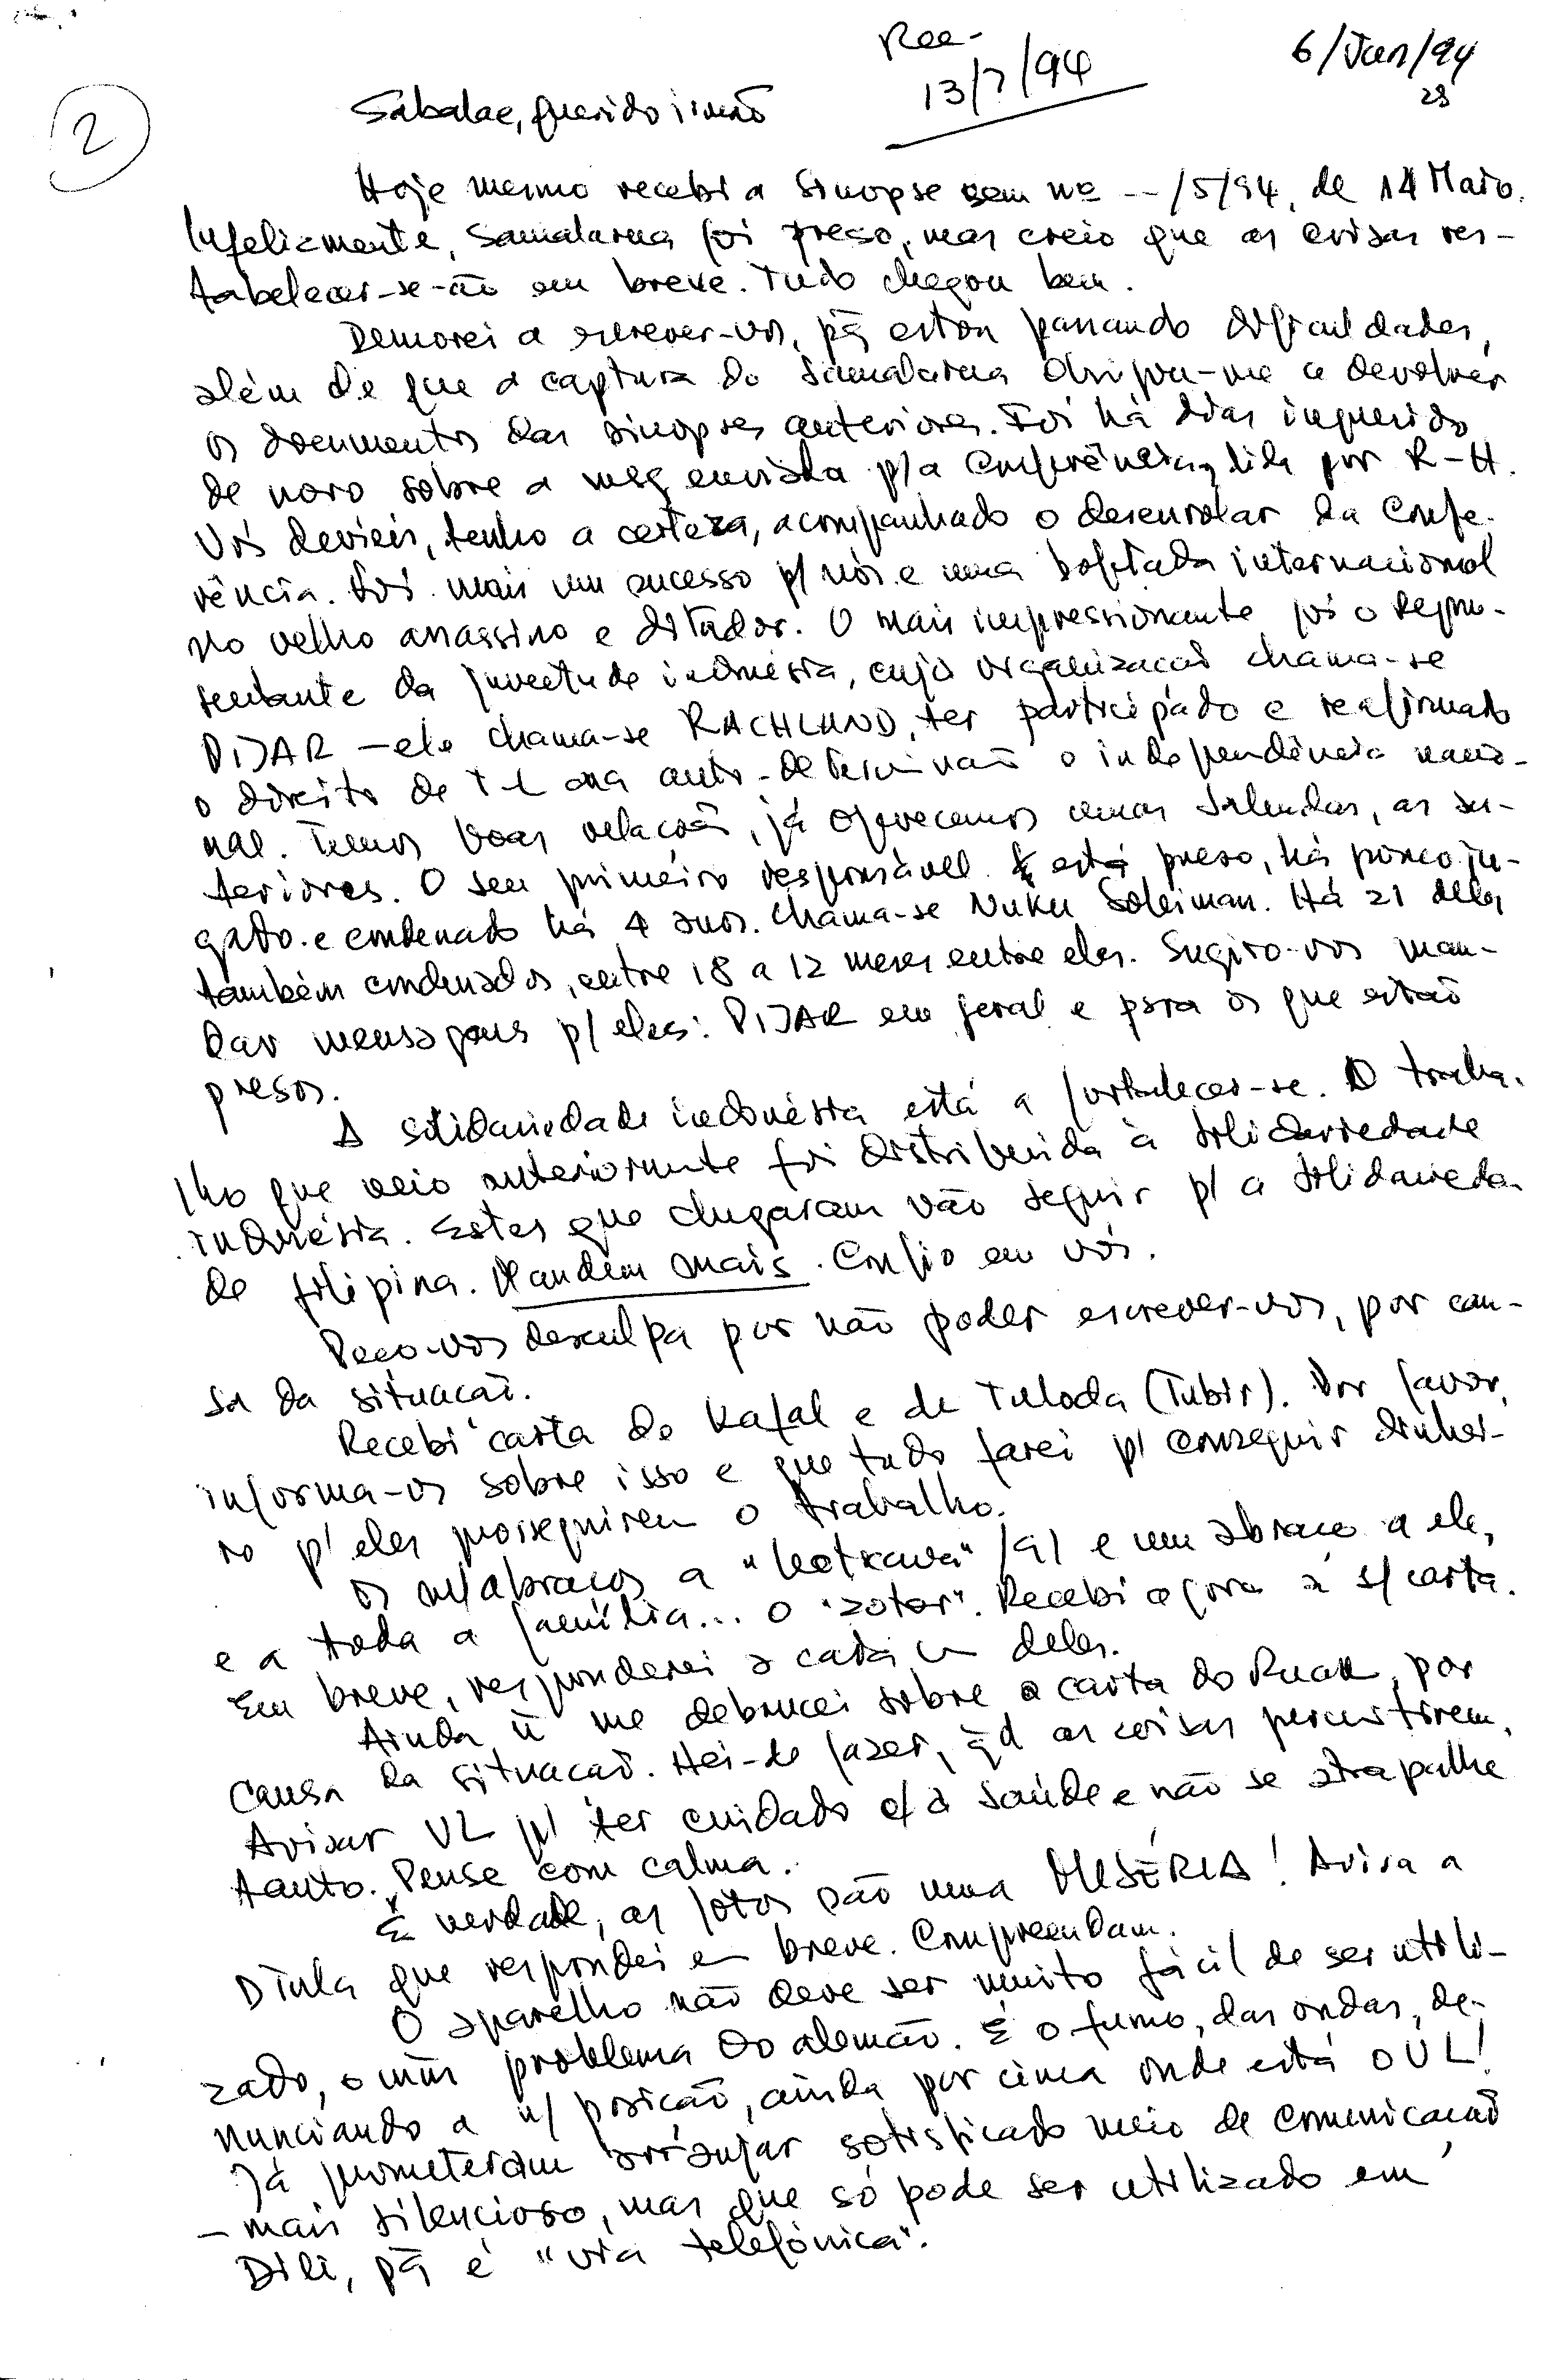 2
Rec-
13/7/94
6/Jun/94
23
Sabalae, querido irmão
Hoje mesmo recebi a Sinopse sem nº --/5/94, de 14 Maio.
Infelizmente, Samalarua foi preso, mas creio que as coisas res-
tabelecer-se-ão em breve. Tudo chegou bem.
Demorei a escrever-vos, pq̃ estou passando dificuldades,
além de que a captura do Samalarua obrigou-me a devolver
os documentos das sinopses anteriores. Foi há dias inquerido
de novo sobre a msg enviada p/a Conferência, lida por R-H.
Vós devieis, tenho a certeza, acompanhado o desenrolar da Confe-
rência. Foi mais um sucesso p/ nós e uma bofetada internacional
no velho assassino e ditador. O mais impressionante foi o repre-
sentante da juventude indonésia, cuja organizacão chama-se
PIJAR - ele chama-se RACHLAND, ter participado e reafirmado
o direito de T-L na auto-determinacão e independência nacio-
nal. Temos boas relacões, já oferecemos umas
teriores. O seu primeiro responsável está preso, há pouco jul-
gado e condenado há 4 anos. Chama-se Nuku Soleiman. Há 21 deles
também condenados, entre 18 a 12 meses entre eles. Sugiro-vos man-
dar mensagens p/ eles: PIJAR em geral e para os que estão
presos.
A solidariedade indonésia está a fortalecer-se. O traba-
lho que veio anteriormente foi distribuida à solidariedade
indonésia. Estes que chegaram vão seguir p/ a solidarieda-
de filipina. Mandem mais. Confio em vós.
Peco-vos desculpa por não poder escrever-vos, por cau-
sa da situacão.
Recebi carta do Kafal e de Tuloda (Tubir). Por favor,
informa-os sobre isso e que tudo farei p/ conseguir dinhei-
ro p/ eles prosseguirem o trabalho.
Os m/abracos a "                " /a/ e um abraco a ele,
e a toda a família... o "zotar". Recebi agora a s/ carta.
Em breve, responderei a cada um deles.
Ainda ñ me debrucei sobre a carta do Ruak, por
causa da situacão. Hei-de fazer, qd as coisas permitirem.
Avisar UL p/ ter cuidado c/ a saúde e não se atrapalhe
tanto. Pense com calma.
É verdade, as fotos são uma MISÉRIA! Avisa a
Dtula que respondei em breve. Compreendam.
O aparelho não deve ser muito fácil de ser utili-
zado, o mm problema do alemão. É o fumo, das ondas, de-
nunciando a n/ posicão, ainda por cima onde está o UL!
Já prometeram arranjar sotisficado meio de comunicacão
- mais silencioso, mas que só pode ser utilizado em
Dili, pq̃ é "via telefónica".